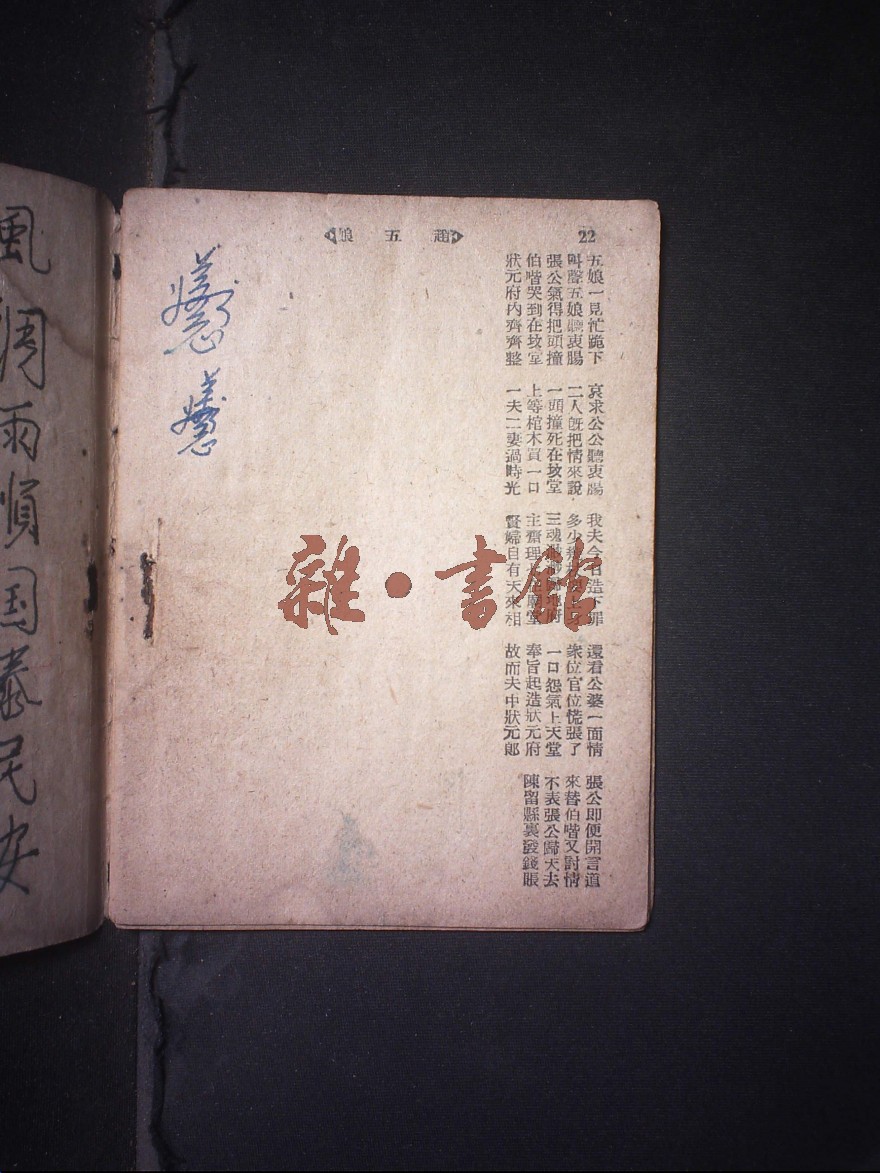 22
趙五娘
五娘一見忙跪下 哀求公公聽衷腸 我夫今日造下罪 還看公婆一面情 張公即便開言道
叫聲五娘聽衷腸 二人旣把情來說 多少 衆位官位慌張了 來替伯喈又討情
張公氣得把頭撞 一頭撞死在坟堂 三魂 府 一口怨氣上天堂 不表張公歸天去
伯喈哭到在坟堂 上等棺木買一口 主齋理 堂 奉旨起造狀元府 陳留縣裏發錢賬
狀元府內齊齊整 一夫二妻過時光 賢婦自有天來相 故而夫中狀元郎
風調雨順国泰民安
雜·書館